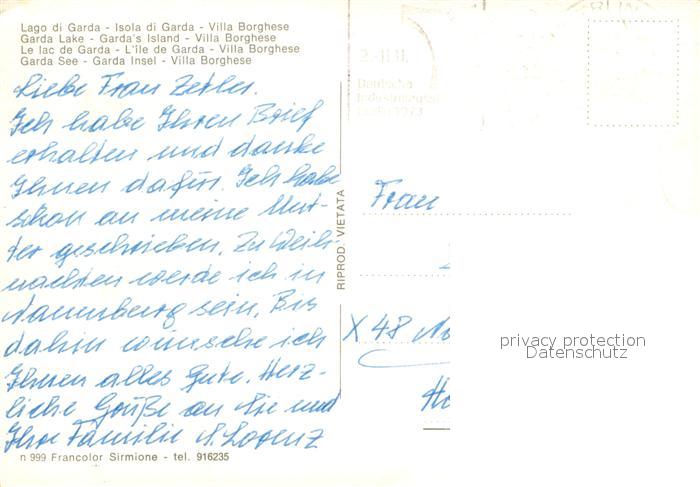 Lago di Garda - Isola di Garda - Villa Borghese
Garda Lake - Garda's Island - Villa Borghese
Le lac de Garda - L'île de Garda - Villa Borghese
Garda See - Garda Insel - Villa Borghese
Liebe Frau
Ich habe Ihren Brief
erhalten und danke
Ihnen dafür. Ich habe
schon an meine Mut-
ter geschrieben. Zu Weih-
nachten werde ich in
Naumburg sein. Bis
dahin wünsche ich
Ihnen alles Gute. Herz-
liche Grüße an Sie und
Ihre Familie
n 999 Francolor Sirmione - tel. 916235
RIPROD. VIETATA
2.-11.11.
Deutsche
Industrieausstellung
1973
Frau
X 48
privacy protection
Datenschutz